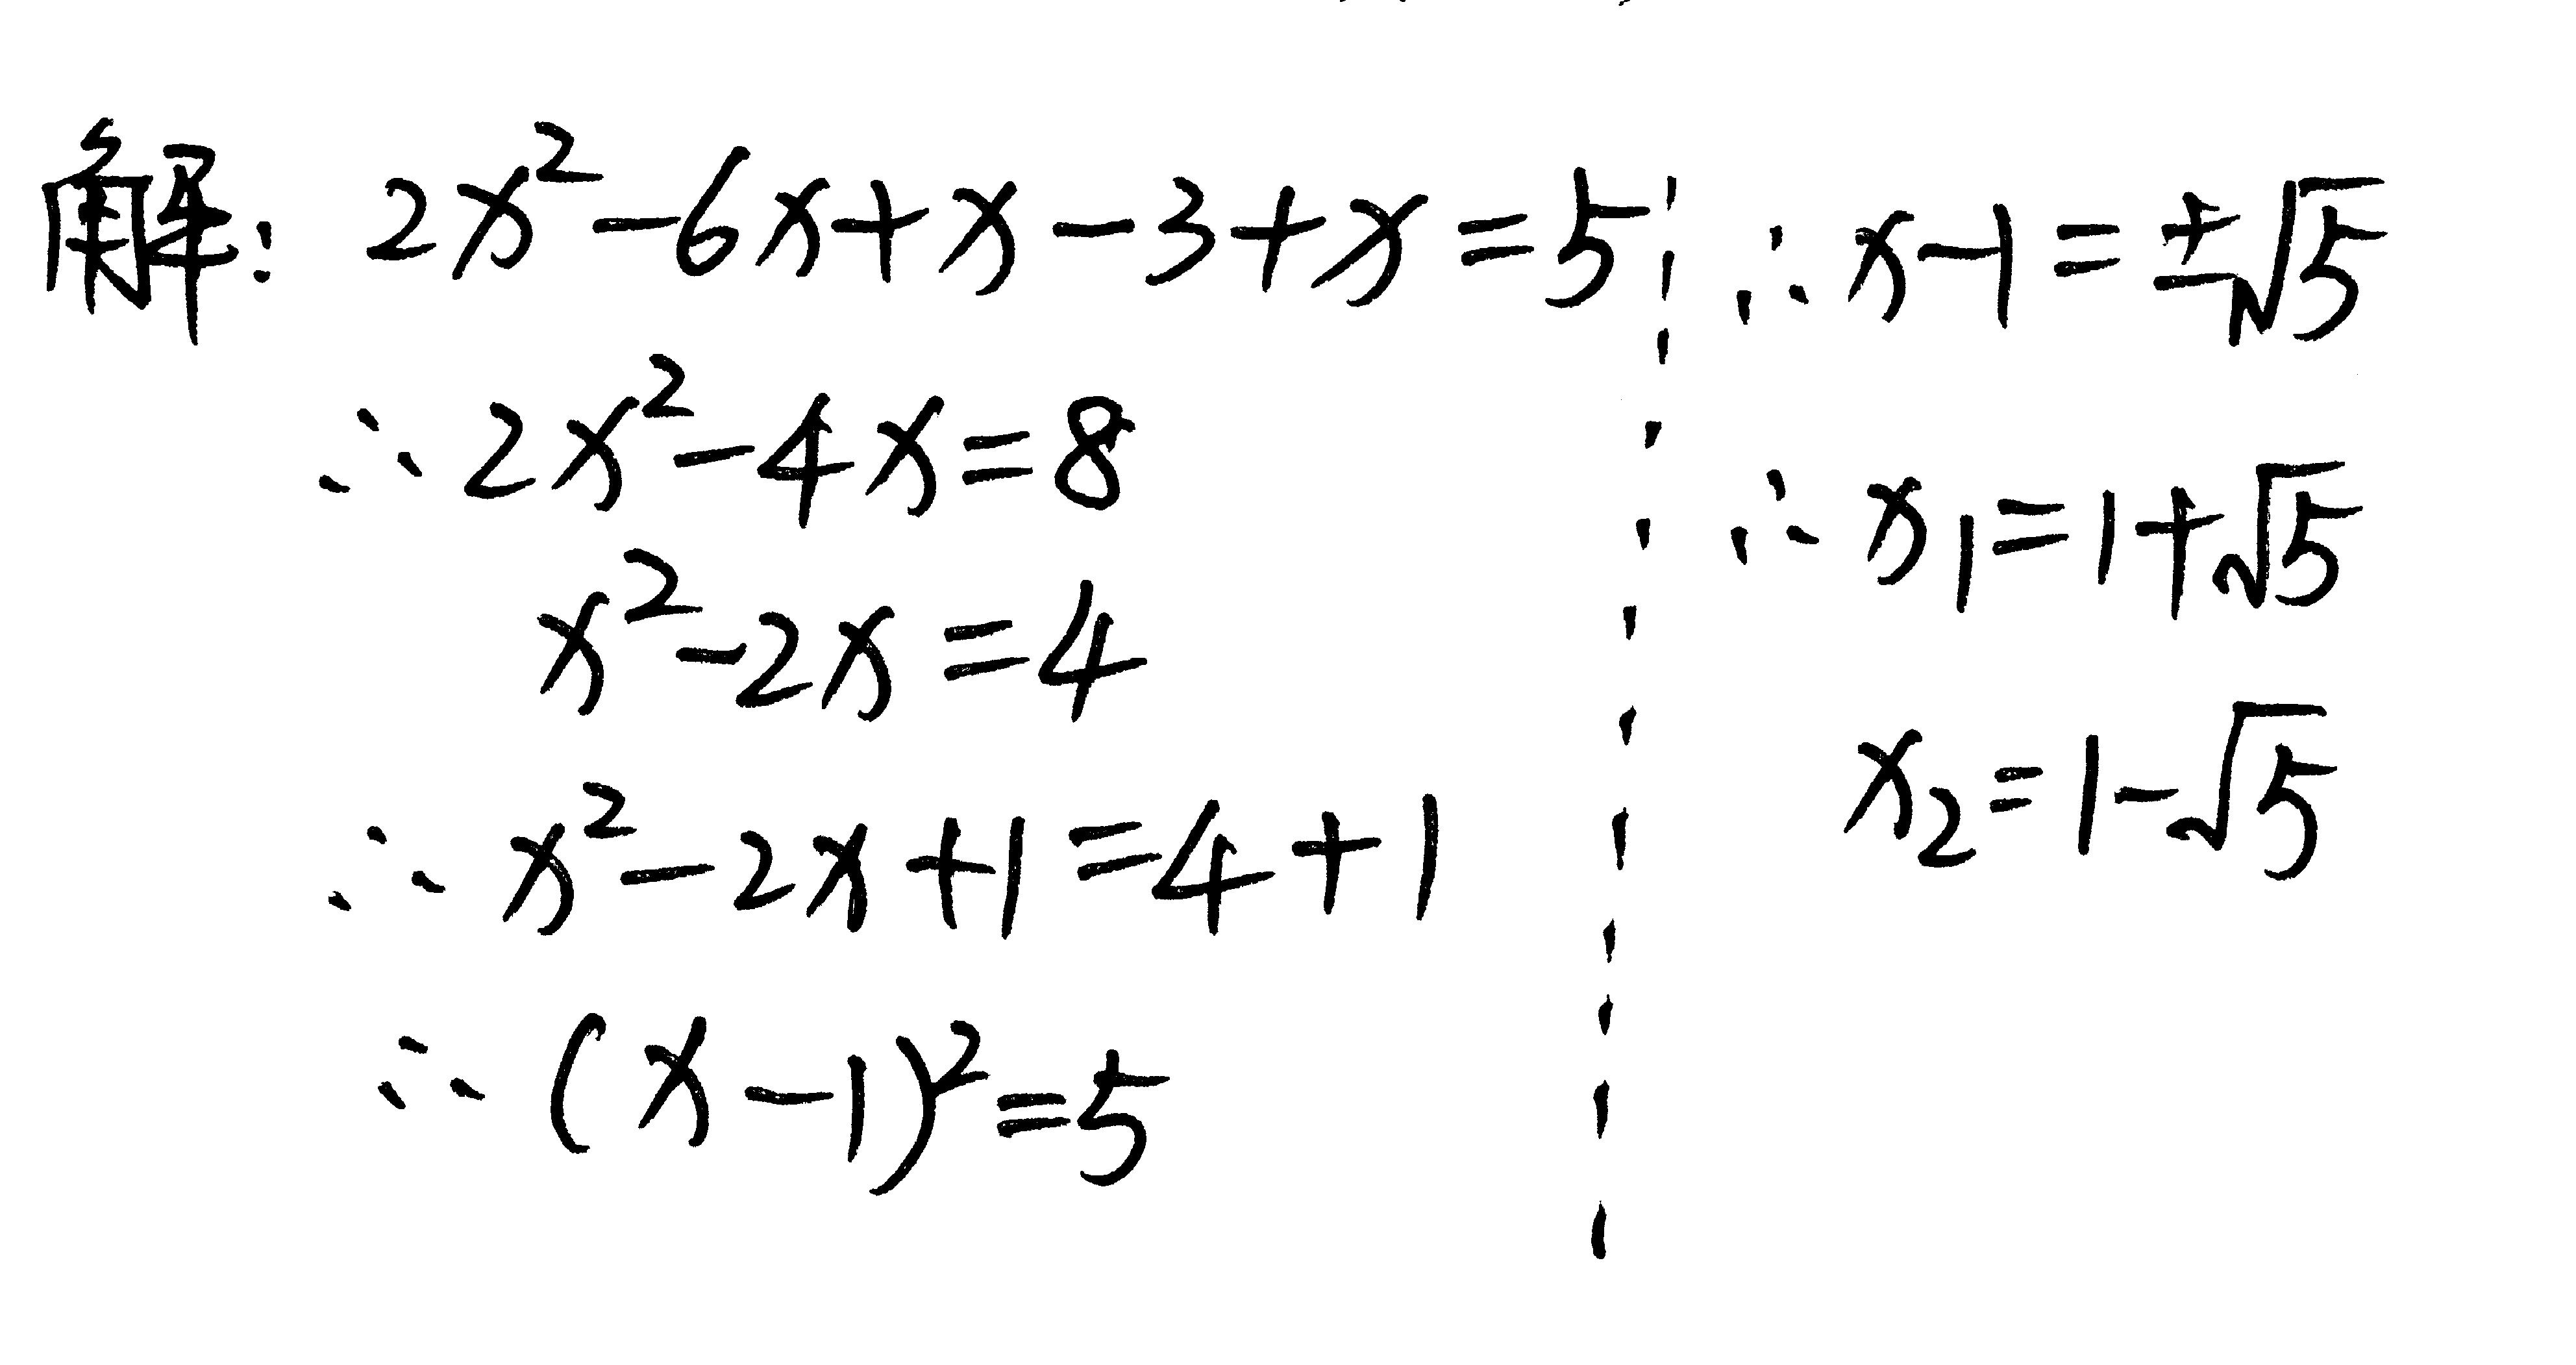 解: 2x²-6x+x-3+x=5
∴ 2x²-4x=8
x²-2x=4
∴ x²-2x+1=4+1
∴ (x-1)²=5
∴ x-1=±√5
∴ x₁=1+√5
x₂=1-√5